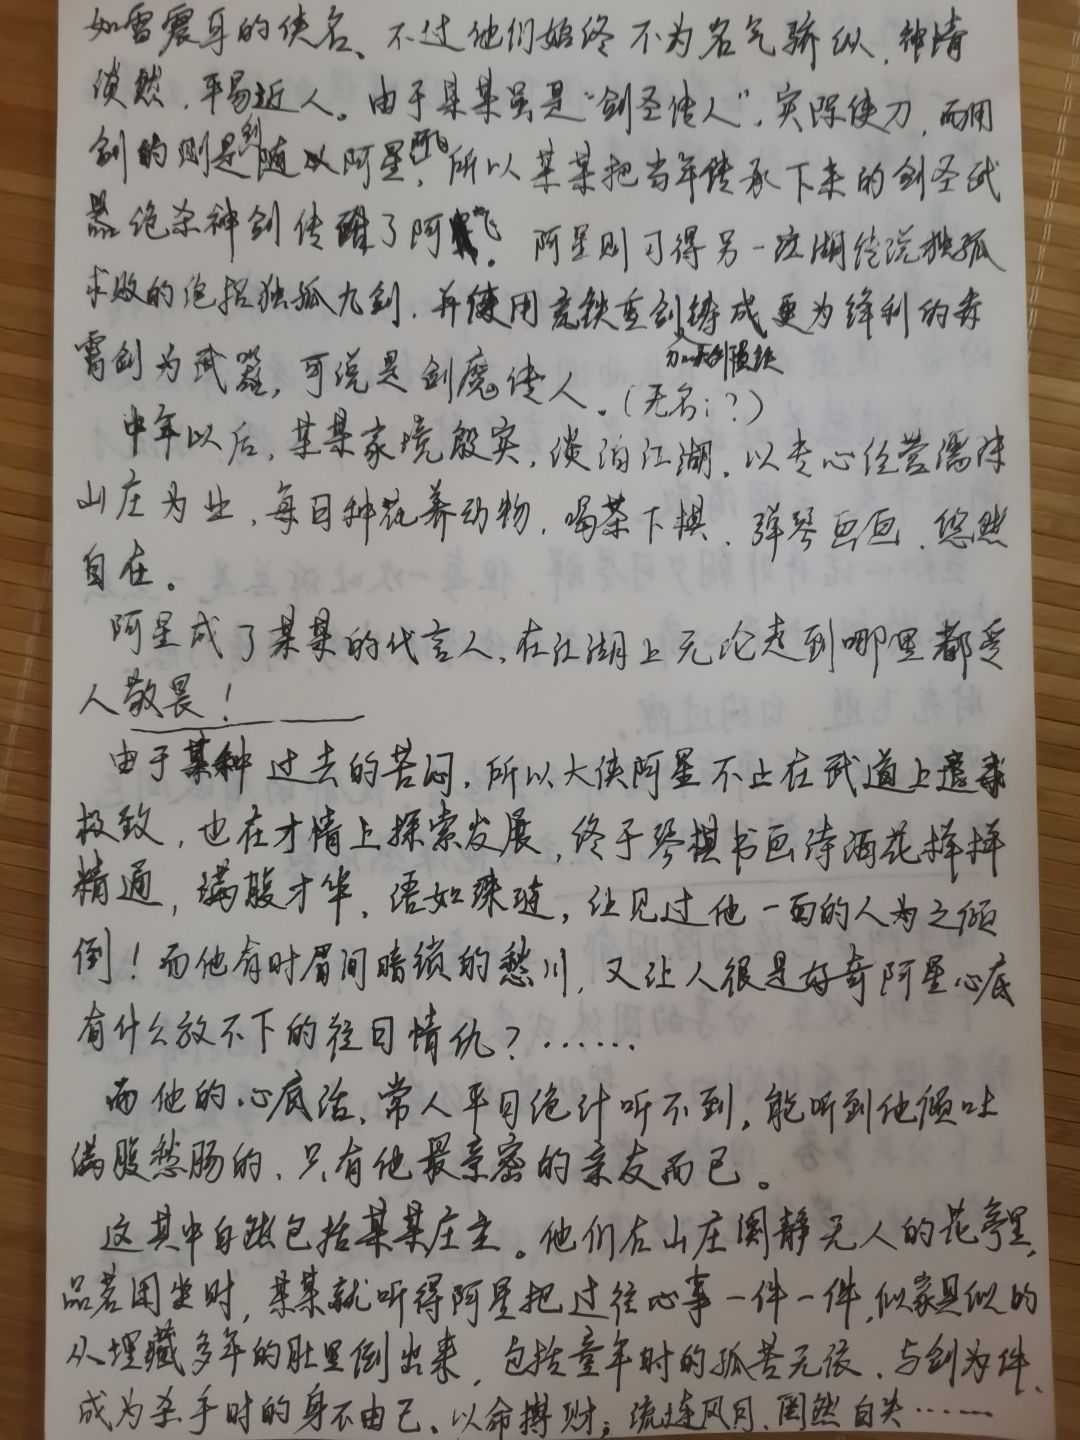 如雷震耳的侠名、不过他们始终不为名气骄纵,神情
淡然,平易近人。由于某某虽是“剑圣传人”,实际使刀,而用
剑的则是随从阿星,所以某某把当年传承下来的剑圣武
器绝杀神剑传了阿飞。阿星则习得另一江湖传说独孤
求败的绝招独孤九剑,并使用玄铁重剑铸成更为锋利的
霄剑为武器,可说是剑魔传人。(无名;?)
中年以后,某某家境殷实,淡泊江湖,以专心经营
山庄为业,每日种花养动物,喝茶下棋、弹琴画画、悠然
自在。
阿星成了某某的代言人,在江湖上无论走到哪里都受
人敬畏!
由于某种过去的苦闷,所以大侠阿星不止在武道上追求
极致,也在才情上探索发展,终于琴棋书画诗酒花样样
精通,满腹才华,语如珠琏,让见过他一面的人为之倾
倒!而他有时眉间暗锁的愁川,又让人很是好奇阿星心底
有什么放不下的往日情仇?……
而他的心底话,常人平日绝计听不到,能听到他倾吐
满腹愁肠的,只有他最亲密的亲友而已。
这其中自然包括某某庄主。他们在山庄阒静无人的花亭里,
品茗围坐时,某某就听得阿星把过往心事一件一件,似家具似的
从埋藏多年的肚里倒出来,包括童年时的孤苦无依、与剑为伴、
成为杀手时的身不由己、以命搏财;流连风月、罔然自失……